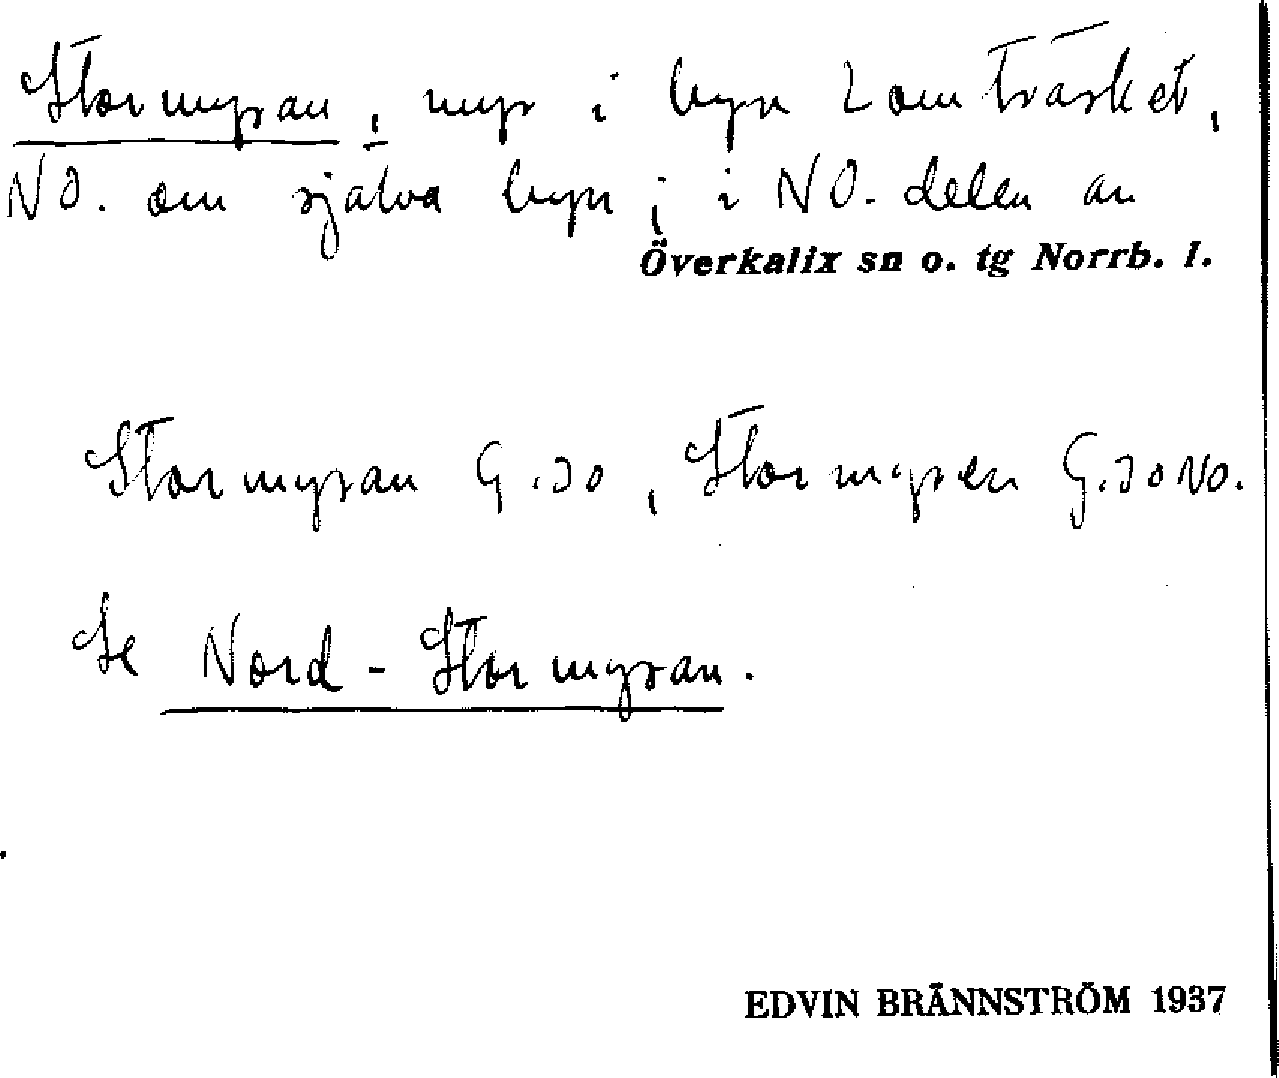 Stormyran, myr i byn Lomträsket,
NO. om själva byn; i NO. delen av
Överkalix sn o. tg Norrb. l.
Stormyran G.30, Stormyren G.30 NO.
Se Nord-Stormyran.
EDVIN BRÄNNSTRÖM 1937